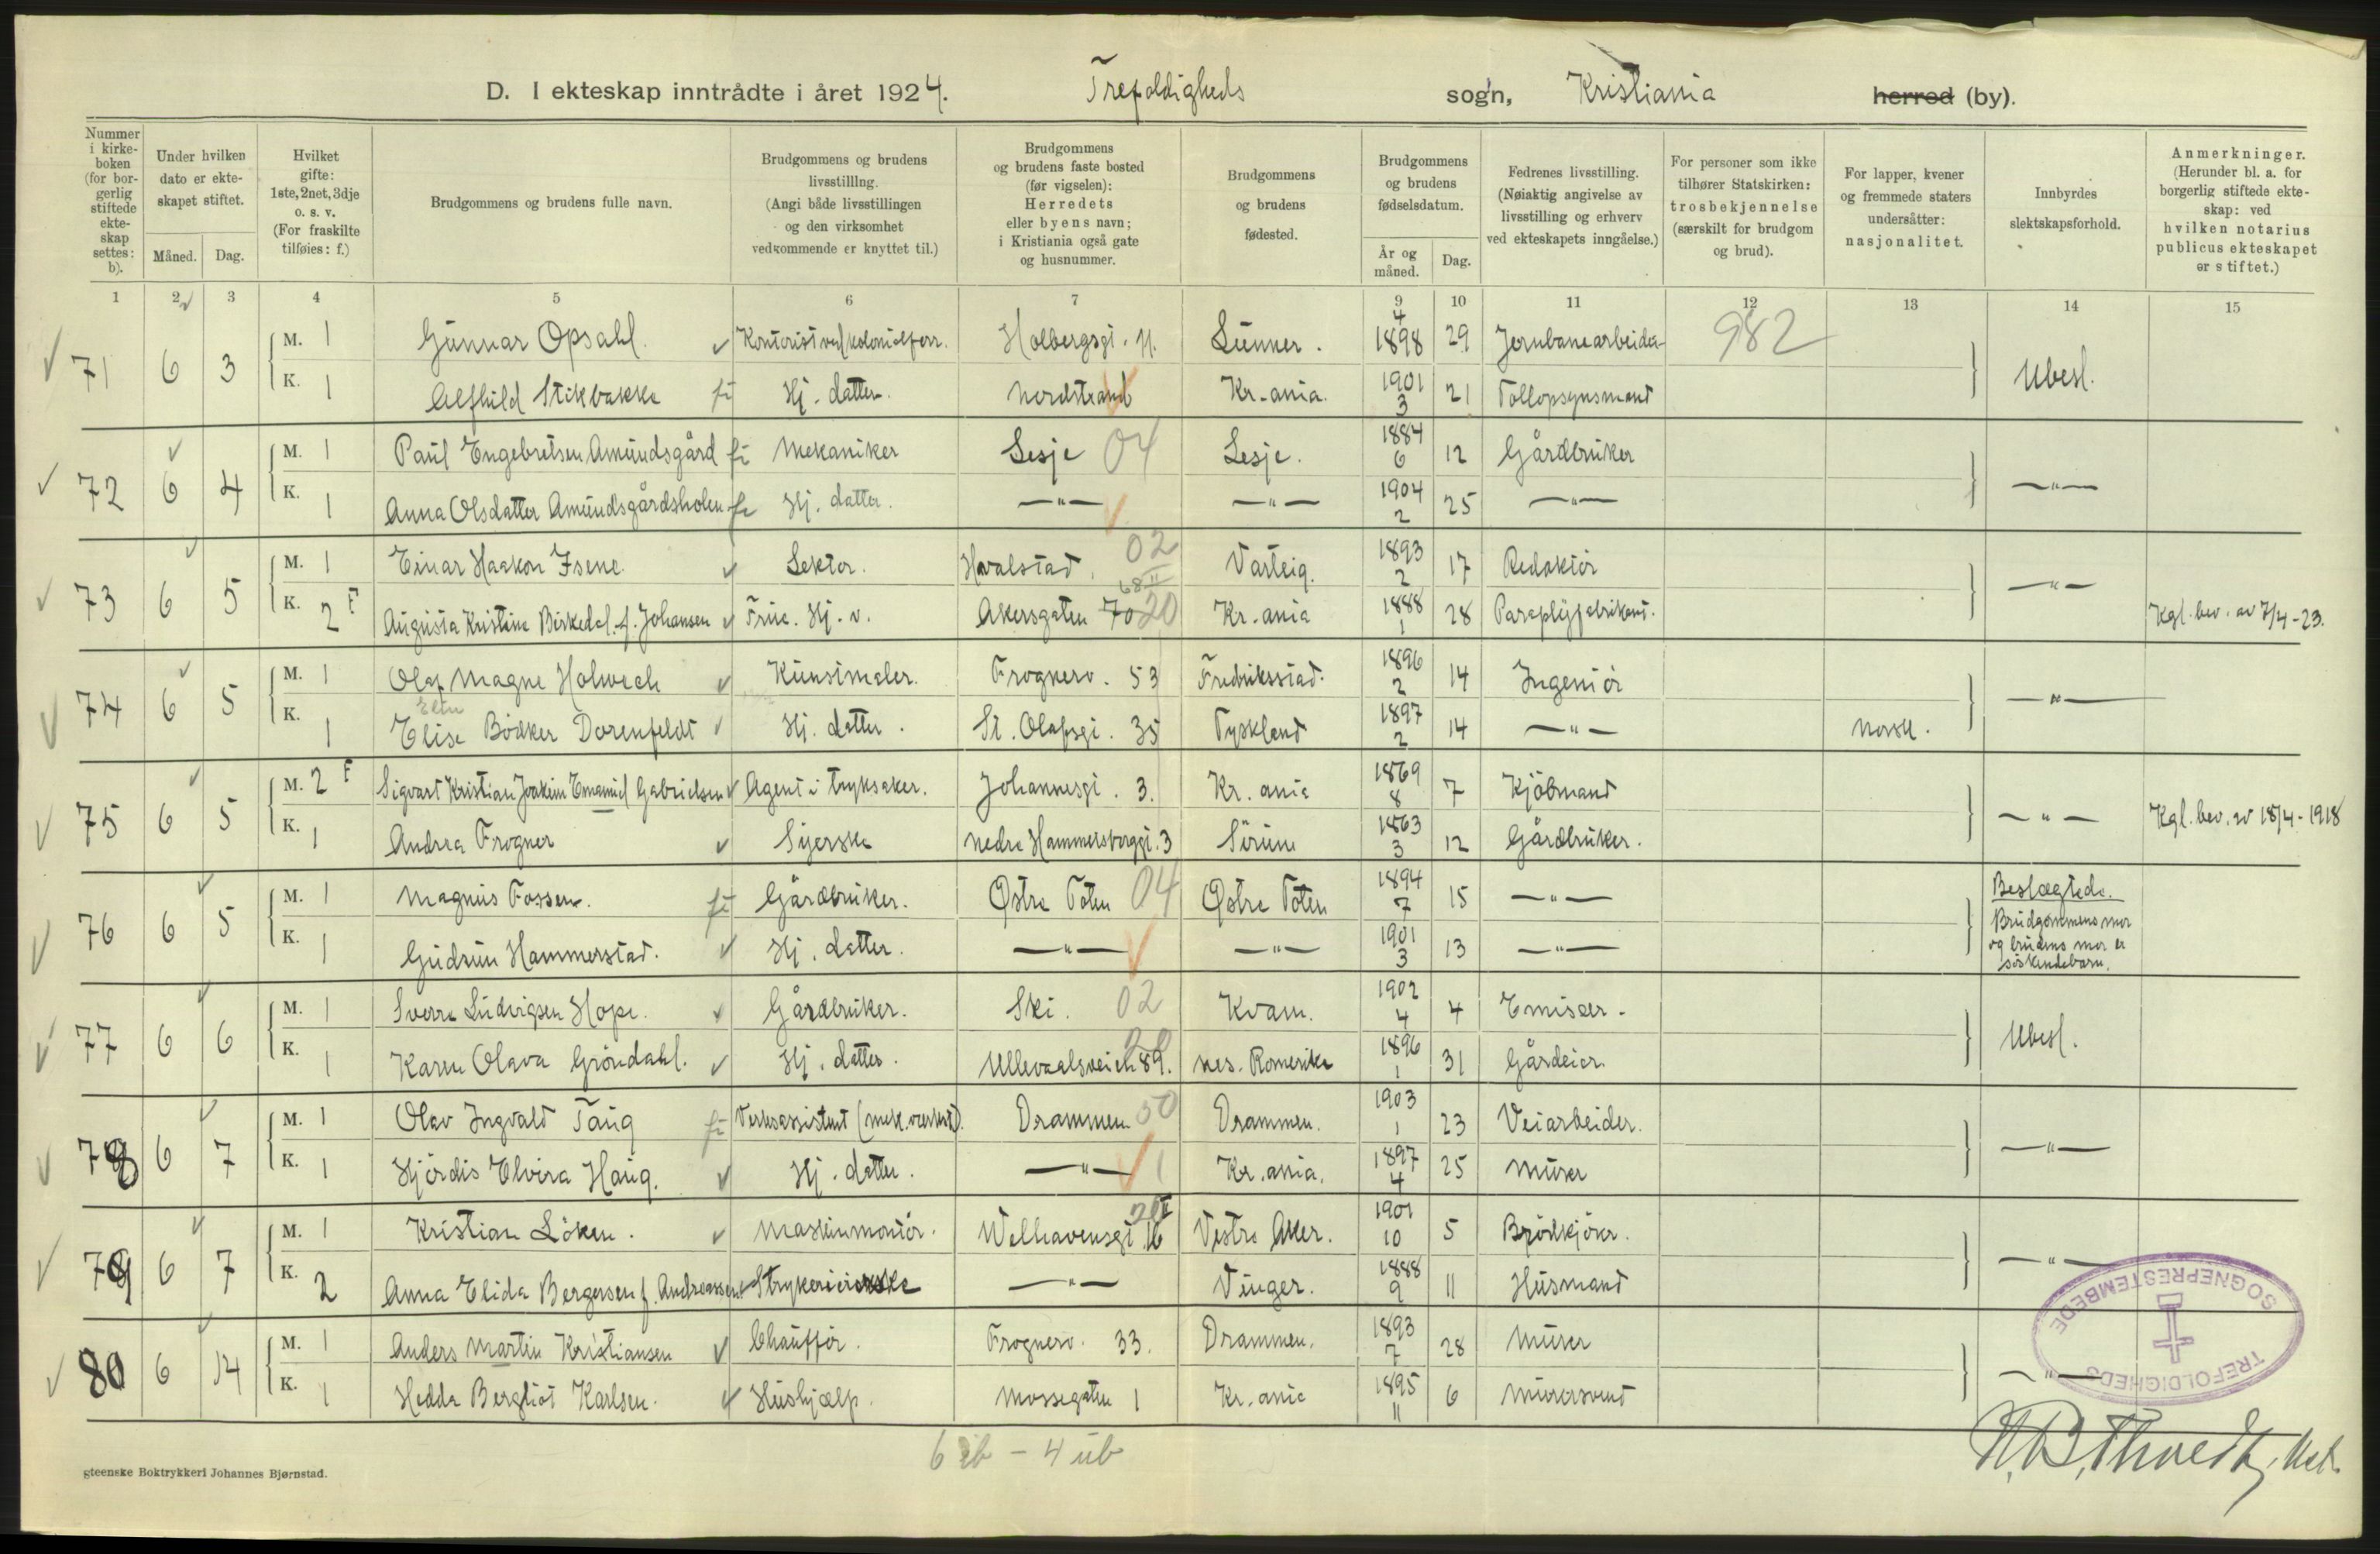 D. I ekteskap inntrådte i året 1924. Trefoldigheds sogn, Kristiania herred (by).
Nummer i kirkeboken (for borgerlig stiftede ekteskap settes: b).
Under hvilken dato er ekteskapet stiftet.
Måned. Dag.
Hvilket gifte: 1ste, 2net, 3dje o. s. v. (For fraskilte tilføies: f.)
Brudgommens og brudens fulle navn.
Brudgommens og brudens livsstilllng. (Angi både livsstillingen og den virksomhet vedkommende er knyttet til.)
Brudgommens og brudens faste bosted (før vigselen): Herredets eller byens navn; i Kristiania også gate og husnummer.
Brudgommens og brudens fødested.
Brudgommens og brudens fødselsdatum.
År og måned. Dag.
Fedrenes livsstilling. (Nøiaktig angivelse av livsstilling og erhverv ved ekteskapets inngåelse.)
For personer som ikke tilhører Statskirken: trosbekjennelse (særskilt for brudgom og brud).
For lapper, kvener og fremmede staters undersåtter: nasjonalitet.
Innbyrdes slektskapsforhold.
Anmerkninger. (Herunder bl. a. for borgerlig stiftede ekteskap: ved hvilken notarius publicus ekteskapet er stiftet.)
1 2 3 4 5 6 7 8 9 10 11 12 13 14 15
71 6 3 M. 1 Gunnar Opsahl. Kontorist ved kolonialforr. Holbergsgt. 11. Lunner. 1898 4 29 Jernbanearbeider 982
K. 1 Alfhild Stikbakke fu Hj. datter. Nordstrand Kr.ania. 1901 3 21 Tollopsynsmand Ubesl.
72 6 4 M. 1 Paul Engebretsen Amundsgård fu Mekaniker Lesje 04 Lesje. 1884 6 12 Gårdbruker
K. 1 Anna Olsdatter Amundsgårdsholen fu Hj. datter. —"— —"— 1904 2 25 —"— —"—
73 6 5 M. 1 Einar Haakon Isene. Lektor. Hvalstad. 02 Varteig. 1893 2 17 Redaktör
K. 2 F Augusta Kristine Birkedal f. Johansen Frue. Hj. v. Akersgaten 70 68 II 20 Kr.ania 1888 1 28 Paraplyfabrikant. —"— Kgl. bev. av 7/4-23.
74 6 5 M. 1 Olaf Magne Holwech Kunstmaler. Frognerv. 53 Fredriksstad. 1896 2 14 Ingeniör
K. 1 Elise Bödker Dorenfeldt Hj. datter. St. Olafsgt. 35 Tyskland 1897 2 14 —"— Norsk. —"—
75 6 5 M. 2 F Sigvart Kristian Joakim Emanuel Gabrielsen Agent i tryksaker. Johannesgt. 3. Kr.ania 1869 8 7 Kjöbmand
K. 1 Andrea Frogner Syerske Nedre Hammersborggt. 3 Sörum 1863 3 12 Gårdbruker. —"— Kgl. bev. av 18/4-1918
76 6 5 M. 1 Magnus Fossen. fu Gårdbruker. Østre Toten 04 Østre Toten 1894 7 15 —"—
K. 1 Gudrun Hammerstad. Hj. datter. —"— —"— 1901 3 13 —"— Beslægtede. Brudgommens mor og brudens mor er söskendebarn.
77 6 6 M. 1 Sverre Ludvigsen Hope. Gårdbruker. Ski. 02 Kvam. 1902 4 4 Emisær.
K. 1 Karen Olava Gröndahl. Hj. datter. Ullevaalsveien 89. Nes. Romerike 1896 1 31 Gårdeier Ubesl.
78 6 7 M. 1 Olav Ingvald Taug fu Verksassistent (mek. verksted). Drammen 50 Drammen. 1903 1 23 Veiarbeider.
K. 1 Hjördis Elvira Haug. Hj. datter. —"— Kr.ania. 1897 4 25 Murer —"—
79 6 7 M. 1 Kristian Löken. Maskinmontör. Welhavensgt. 16 Vestre Aker. 1901 10 5 Brödkjörer.
K. 2 Anna Elida Bergersen f. Andreassen Strykerierske —"— Vinger. 1888 9 11 Husmand —"—
80 6 14 M. 1 Anders Martin Kristiansen Chauffør. Frognerv. 33. Drammen. 1893 7 28 Murer
K. 1 Hedda Bergliot Karlsen. Hushjælp. Mossegaten 1 Kr.ania 1895 11 6 Murersvend —"—
TREFOLDIGHEDS SOGNEPRESTEMBEDE
6 ib - 4 üb
gteenske Boktrykkeri Johannes Bjørnstad.